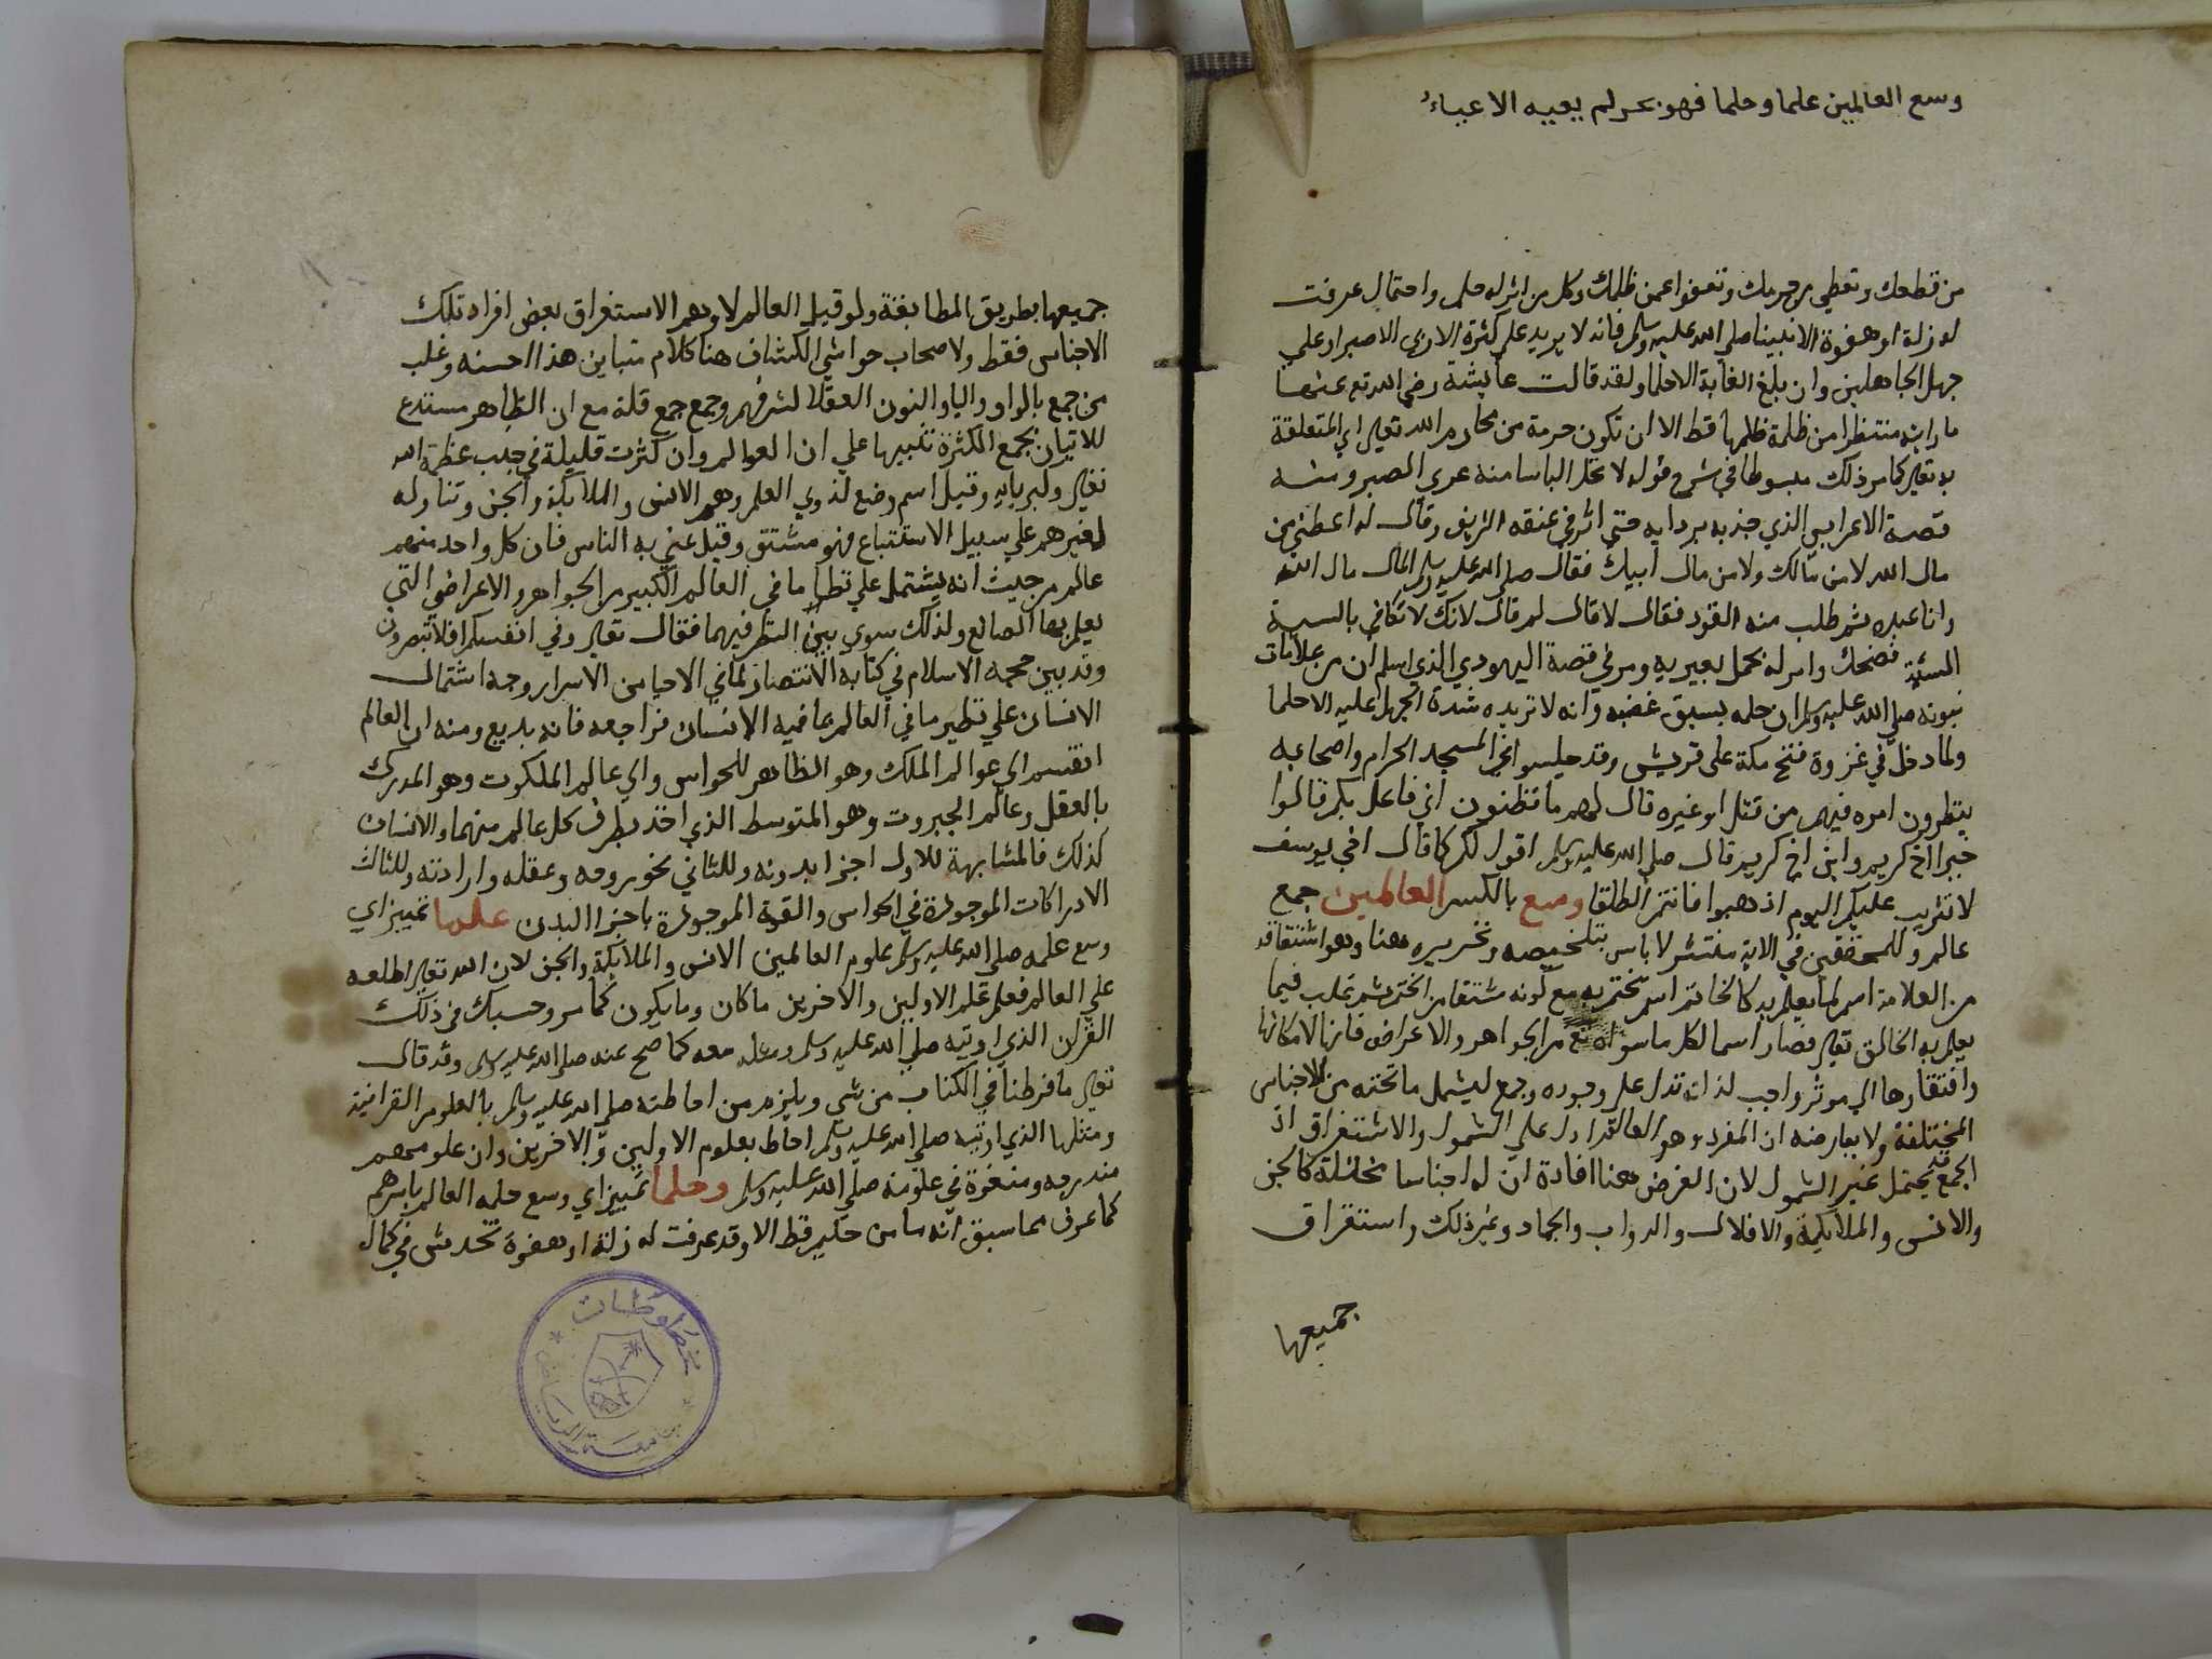 وسع العالمين علما وحلما فهو بحر لم يعيه الاعباء
من قطعك وتعطي من حرمك وتعفوا عمن ظلمك وكل من اثر له حلم واحتمال عرفت
له زلة او هفوة الا نبينا صلى الله عليه وسلم فانه لا يزيد على كثرة الاذى الا صبرا وعلى
جهل الجاهلين وان بلغ الغاية الا حلما ولقد قالت عايشة رضي الله تع عنها
ما رايته منتظرا من ظلمة ظلمها قط الا ان تكون حرمة من محارم الله تعالى اي المتعلقة
به تعالى كما مر ذلك مبسوطا في شرح قوله لا تحل الباسا منه عرى الصبر ومنه
قصة الاعرابي الذي جذبه بردايه حتى اثر في عنقه الشريف وقال له اعطني من
مال الله لا من مالك ولا من مال ابيك فقال صلى الله عليه وسلم المال مال الله
وانا عبده ثم طلب منه القود فقال لا قال لم قال لانك لا تكافي بالسية
السيئة فضحك وامر له بحمل بعيريه ومر في قصة اليهودي الذي اسلم ان من علامات
نبوته صلى الله عليه وسلم ان حلمه يسبق غضبه وانه لا تزيده شدة الجهل عليه الا حلما
ولما دخل في غزوة فتح مكة على قريش وقد جلسوا في المسجد الحرام واصحابه
ينتظرون امره فيهم من قتل او غيره قال لهم ما تظنون اني فاعل بكم قالوا
خيرا اخ كريم وابن اخ كريم قال صلى الله عليه وسلم اقول لكم كما قال اخي يوسف
لا تثريب عليكم اليوم اذهبوا فانتم الطلقا وسع بالكسر العالمين جمع
عالم وللمحققين في الاية منتشر لا باس بتلخيصه وتحريره هنا وهو اشتقاقه
من العلامة اسم لما يعلم به كالخاتم اسم لما يختم به مع كونه مشتقا من الختم ثم غلب فيما
يعلم به الخالق تعالى فصار اسما لكل ما سواه تع من الجواهر والاعراض فانها لامكانها
وافتقارها الى موثر واجب لذاته تدل على وجوده وجمع ليشمل ما تحته من الاجناس
المختلفة ولا يعارضه ان المفرد وهو العالم ادل على الشمول والاستغراق اذ
الجمع قد يحتمل غير الشمول لان الغرض هنا افادة ان له اجناسا مختلفة كالجن
والانس والملايكة والافلاك والدواب والجماد وغير ذلك واستغراق
جميعها
جميعها بطريق المطابقة ولو قيل العالم لاوهم الاستغراق بعض افراد تلك
الاجناس فقط ولاصحاب حواشي الكشاف هنا كلام متباين هذا احسنه وغلب
من جمع بالواو واليا والنون العقلا لشرفهم وجمع جمع قلة مع ان الظاهر مستدع
للاتيان بجمع الكثرة تنبيها على ان العوالم وان كثرت قليلة في جنب عظمة الله
تعالى وكبريايه وقيل اسم وضع لذوي العلم وهم الانس والملايكة والجن وتناوله
لغيرهم على سبيل الاستتباع فهو مشتق وقيل عني به الناس فان كل واحد منهم
عالم من حيث انه يشتمل على نظاير ما في العالم الكبير من الجواهر والاعراض التي
يعلم بها الصانع ولذلك سوى بين النظر فيهما فقال تعالى وفي انفسكم افلا تبصرون
وقد بين حجة الاسلام في كتابه الانتصار لما في الاحيا من الاسرار وجه اشتمال
الانسان على نظير ما في العالم بما فيه الانسان فراجعه فانه بديع ومنه ان العالم
انقسم الى عوالم الملك وهو الظاهر للحواس والى عالم الملكوت وهو المدرك
بالعقل وعالم الجبروت وهو المتوسط الذي اخذ بطرف كل عالم منهما والانسان
كذلك فالمشابهة للاول اجزا بدنه وللثاني نحو روحه وعقله وارادته وللثالث
الادراكات الموجودة في الحواس والقوة الموجودة باجزا البدن علما تمييز اي
وسع علمه صلى الله عليه وسلم علوم العالمين الانس والملايكة والجن لان الله تعالى اطلعه
على العالم فعلم علم الاولين والاخرين ما كان وما يكون كما مر وحسبك في ذلك
القران الذي اوتيه صلى الله عليه وسلم ومثله معه كما صح عنه صلى الله عليه وسلم وقد قال
تعالى ما فرطنا في الكتاب من شي ويلزم من احاطته صلى الله عليه وسلم بالعلوم القرانية
ومثلها الذي اوتيه صلى الله عليه وسلم احاط بعلوم الاولين والاخرين وان علومهم
مندرجة ومنغمرة في علومه صلى الله عليه وسلم وحلما تمييز اي وسع حلمه العالم باسرهم
كما عرف مما سبق انه ما من حكيم قط الا وقد عرفت له زلة او هفوة تخدش في كمال
مخطوطات
جامعة الرياض